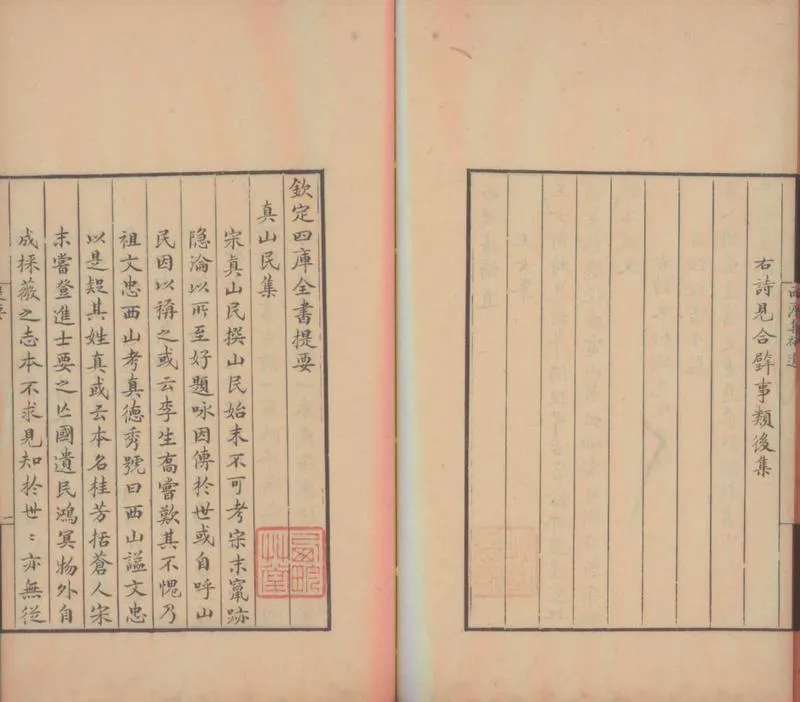 右詩見合璧事類後集
欽定四庫全書提要
真山民集
宋真山民撰山民始末不可考宋末竄跡
隐淪以所至好題咏因傳於世或自呼山
民因以稱之或云李生喬嘗歎其不愧乃
祖文忠西山考真德秀號曰西山謚文忠
以是疑其姓真或云本名桂芳括蒼人宋
末嘗登進士要之亡國遺民鴻冥物外自
成採薇之志本不求見知於世〻亦無從